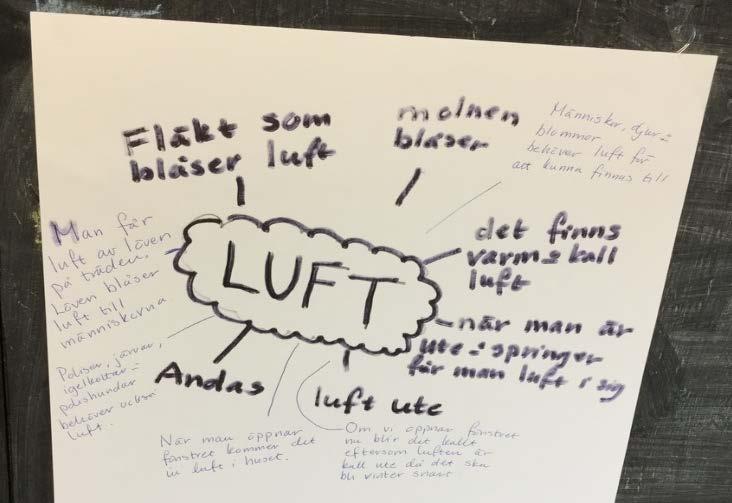 Fläkt som
blåser luft
molnen
blåser
Människor, djur &
blommor
behöver luft för
att kunna finnas till
Man får
luft av löven
på träden.
Löven blåser
luft till
människorna
LUFT
det finns
varm & kall
luft
när man är
ute & springer
får man luft i sig
Poliser, järvar,
igelkottar &
polishundar
behöver också
luft.
Andas
luft ute
När man öppnar
fönstret kommer det
in luft i huset.
Om vi öppnar fönstret
nu blir det kallt
eftersom luften är
kall ute då det ska
bli vinter snart